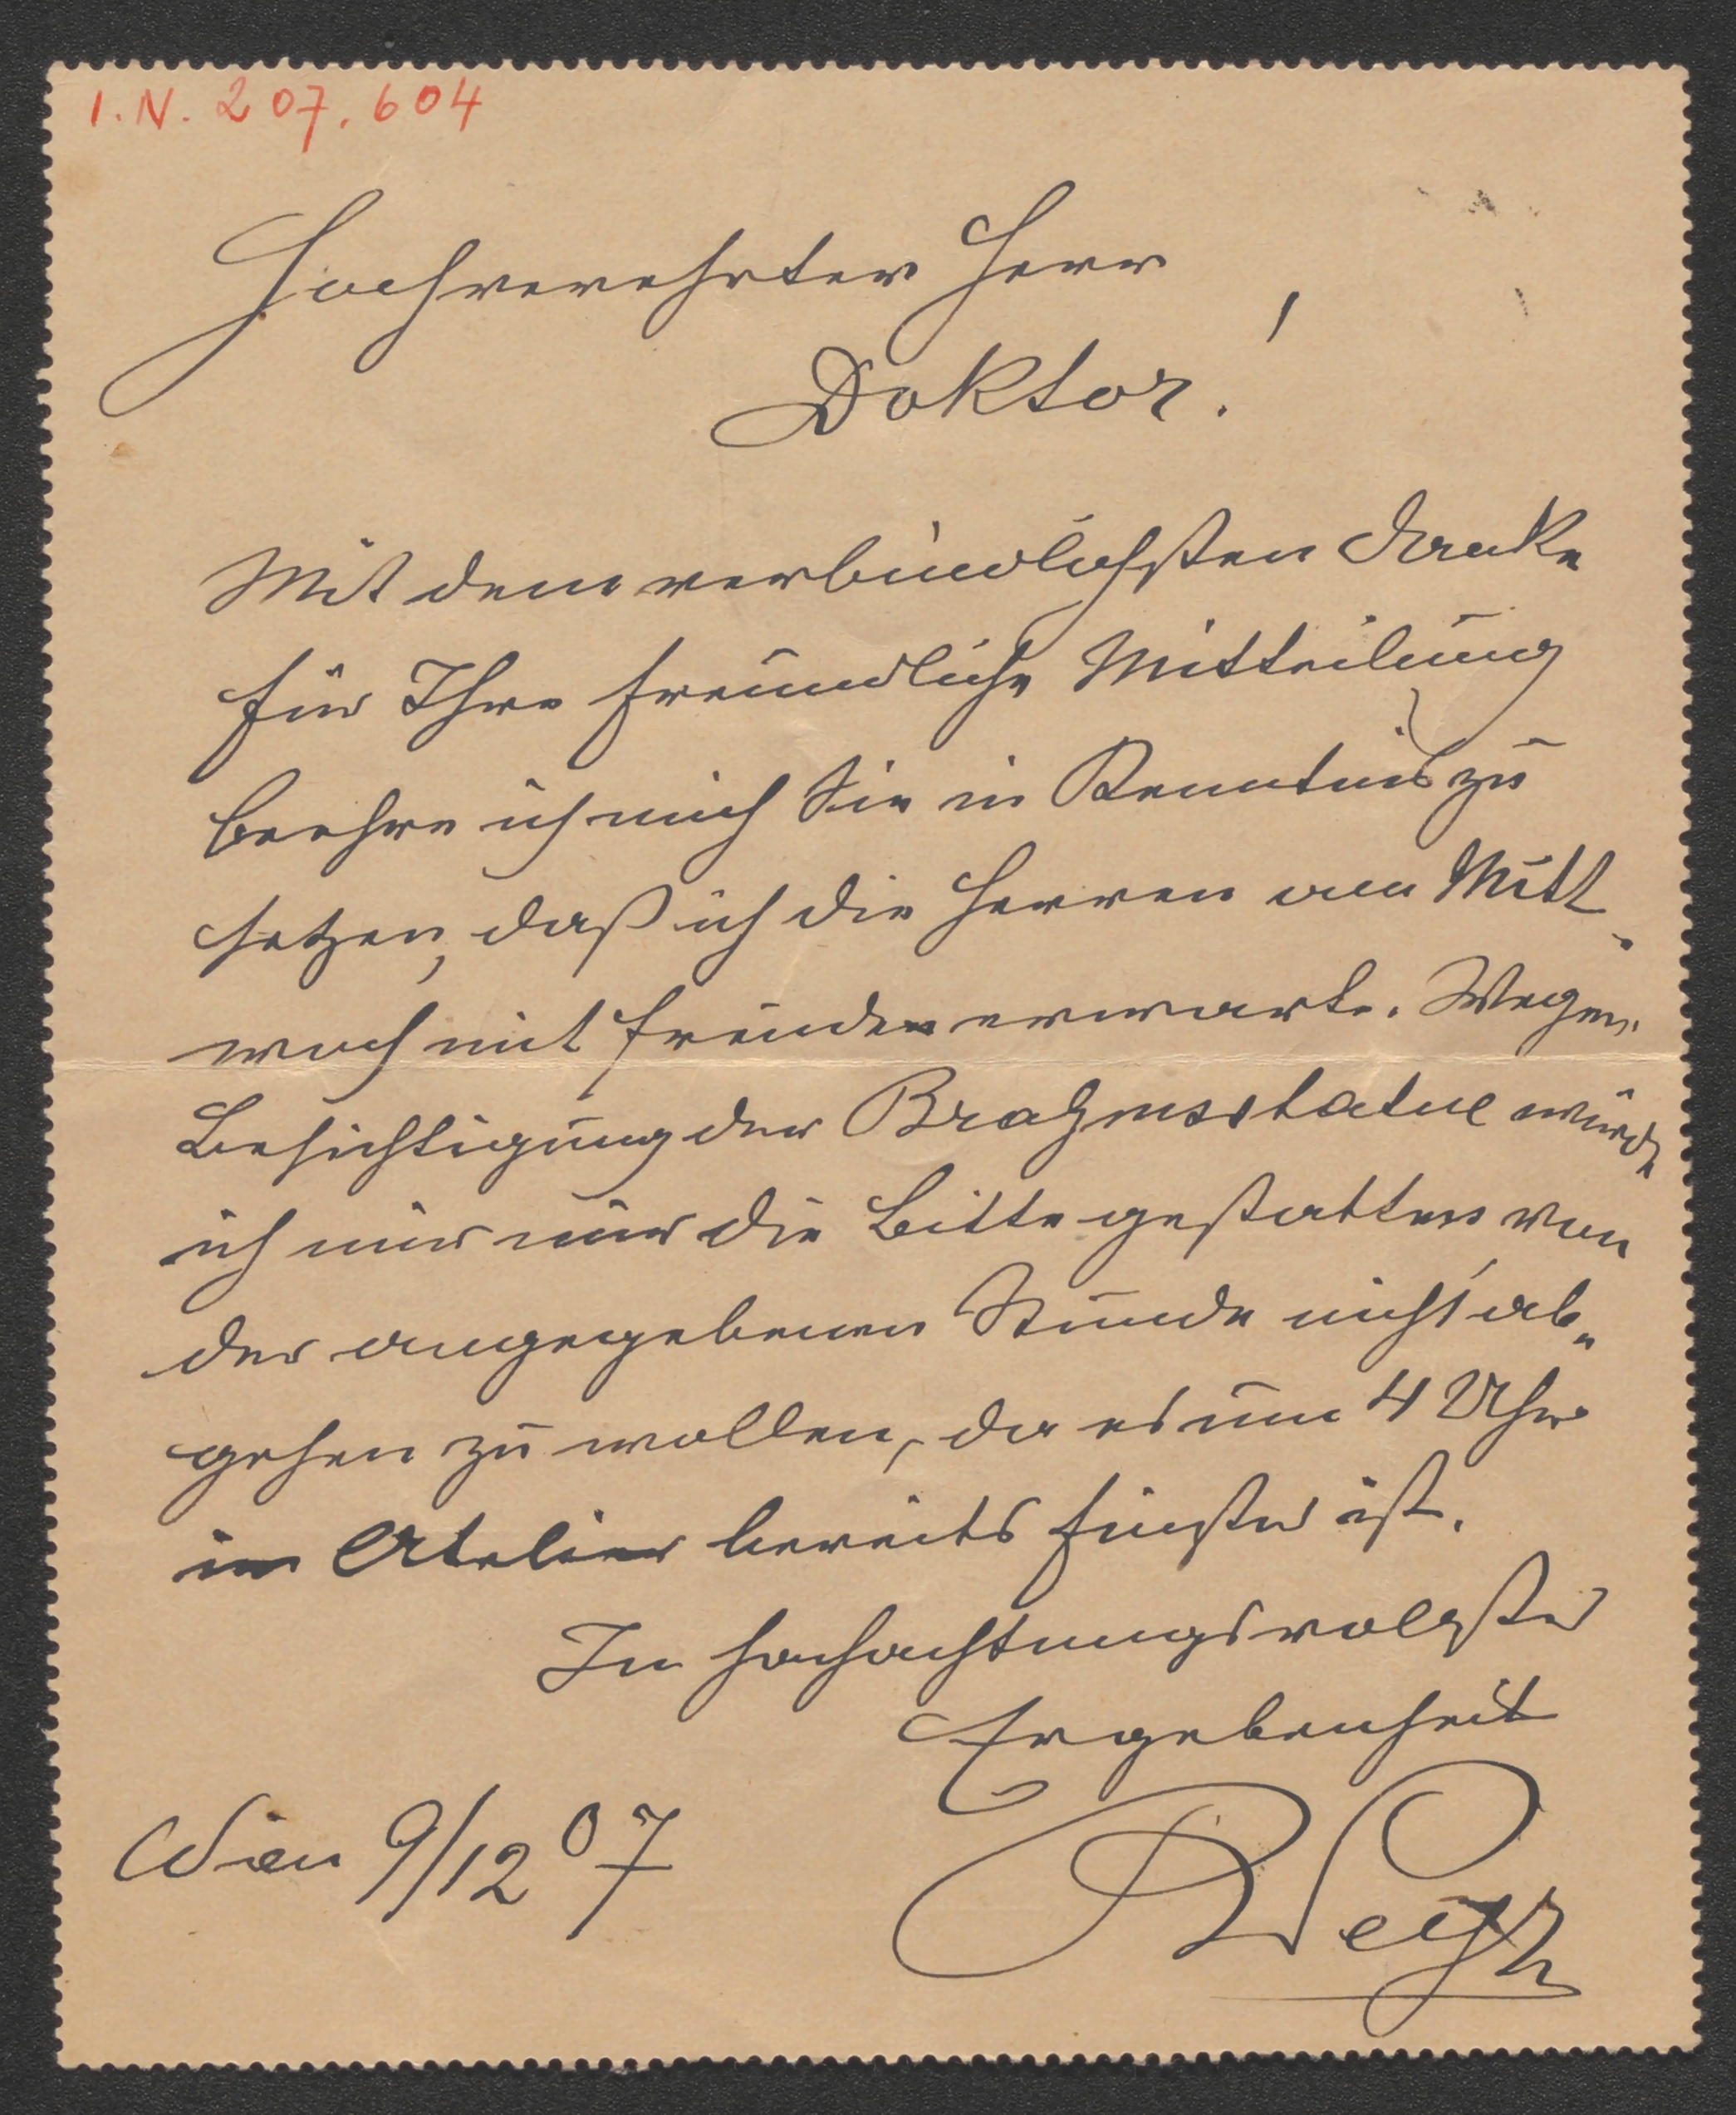 I.N. 207.604
Hochverehrter Herr
Doktor!
Mit dem verbindlichsten Danke
für Ihre freundliche Mitteilung
beehre ich mich Sie in Kenntnis zu
setzen, daß ich die Herren am Mitt-
woch mit Freuden erwarte. Wegen
Besichtigung der Brahmsstatue würde
ich mir nur die Bitte gestatten von
der angegebenen Stunde nicht ab-
gehen zu wollen, da es um 4 Uhr
im Atelier bereits finster ist.
In hochachtungsvollster
Ergebenheit
Wien 9/12 07
RWeyr